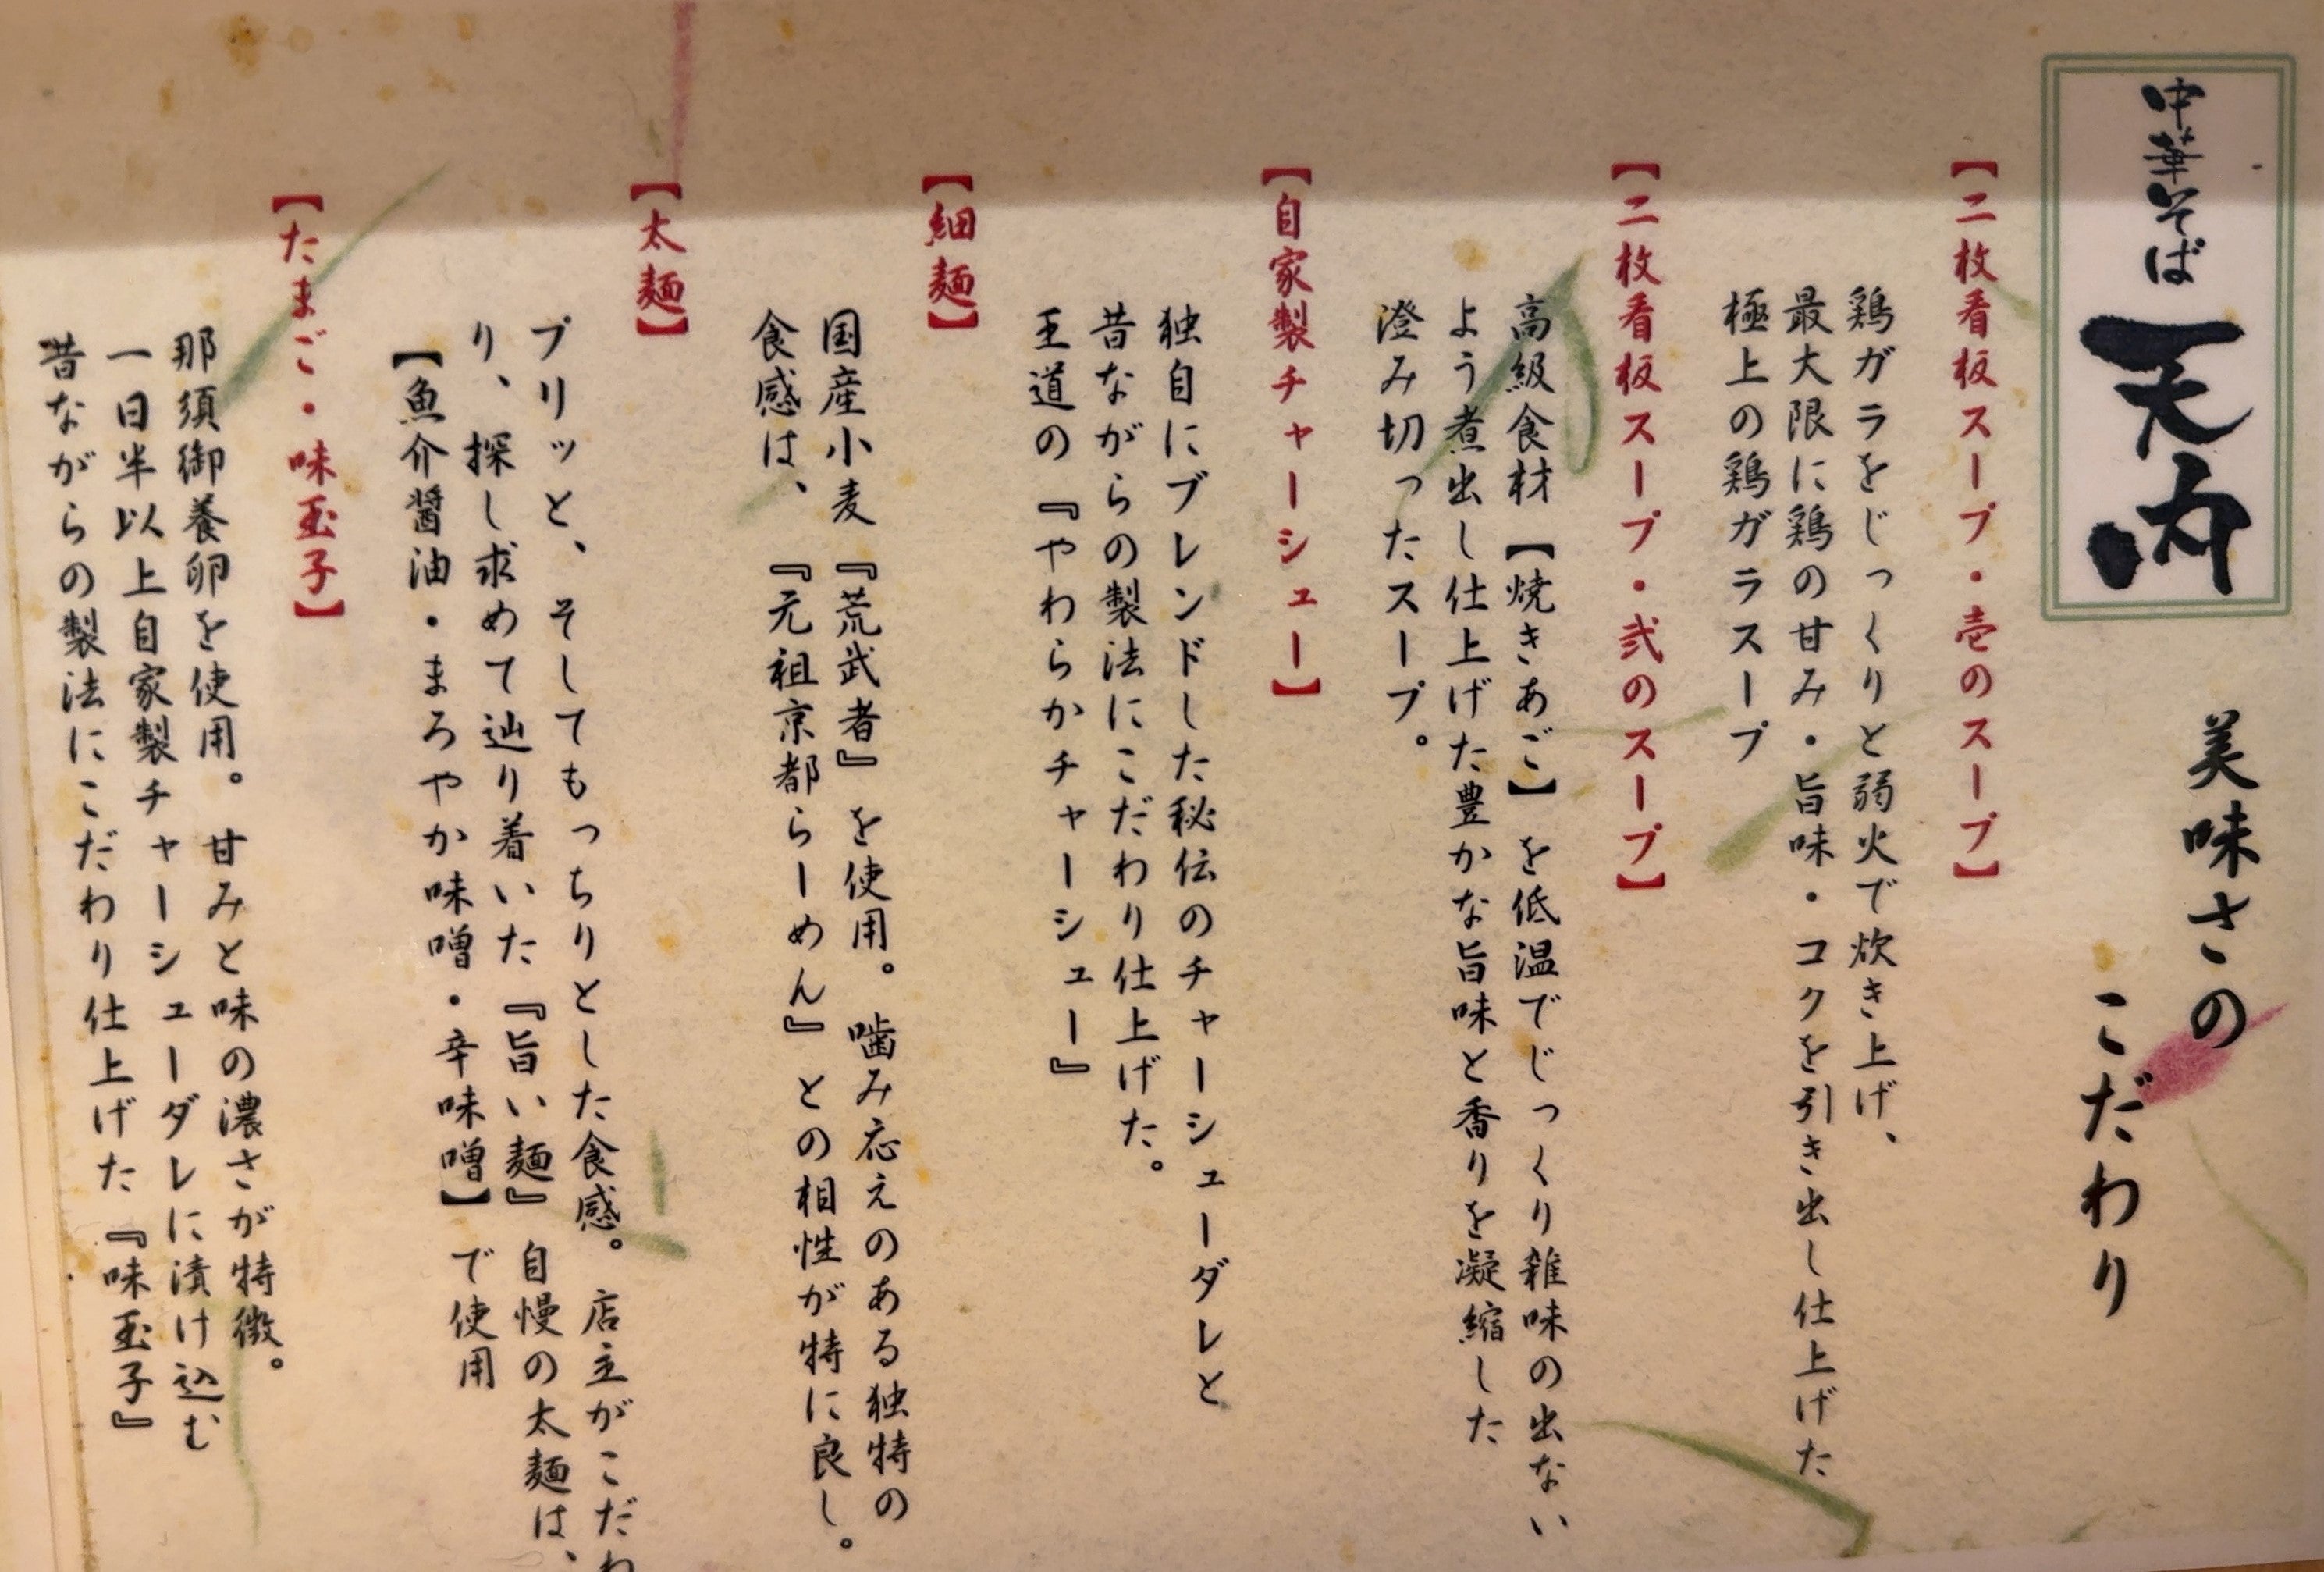 中華そば
天内
美味さの
こだわり
【二枚看板スープ・壱のスープ】
鶏ガラをじっくりと弱火で炊き上げ、
最大限に鶏の甘み・旨味・コクを引き出し仕上げた
極上の鶏ガラスープ
【二枚看板スープ・弐のスープ】
高級食材【焼きあご】を低温でじっくり雑味の出ない
よう煮出し仕上げた豊かな旨味と香りを凝縮した
澄み切ったスープ。
【自家製チャーシュー】
独自にブレンドした秘伝のチャーシューダレと
昔ながらの製法にこだわり仕上げた。
王道の『やわらかチャーシュー』
【細麺】
国産小麦『荒武者』を使用。噛み応えのある独特の
食感は、『元祖京都らーめん』との相性が特に良し。
【太麺】
プリッと、そしてもっちりとした食感。店主がこだわ
り、探し求めて辿り着いた『旨い麺』自慢の太麺は、
【魚介醤油・まろやか味噌・辛味噌】で使用
【たまご・味玉子】
那須御養卵を使用。甘みと味の濃さが特徴。
一日半以上自家製チャーシューダレに漬け込む
昔ながらの製法にこだわり仕上げた『味玉子』